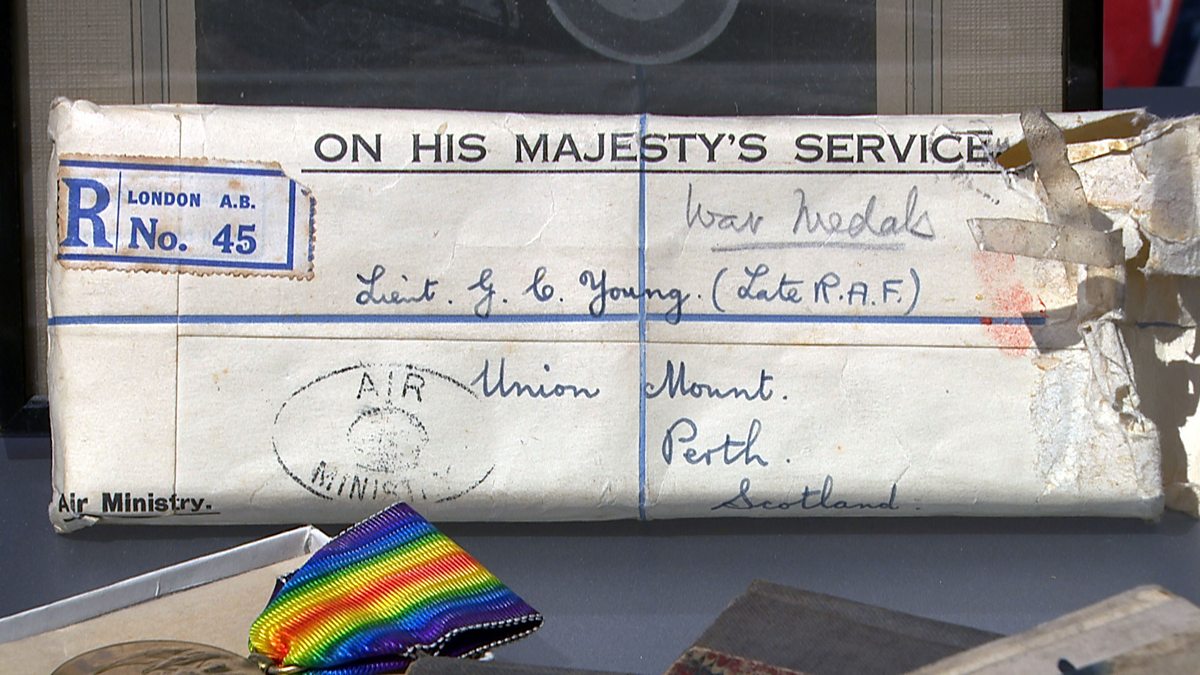 ON HIS MAJESTY'S SERVICE
R LONDON A.B.
No. 45
War Medals
Lieut. G. C. Young. (Late R.A.F.)
Union Mount.
Perth.
Scotland.
AIR
MINISTRY
Air Ministry.